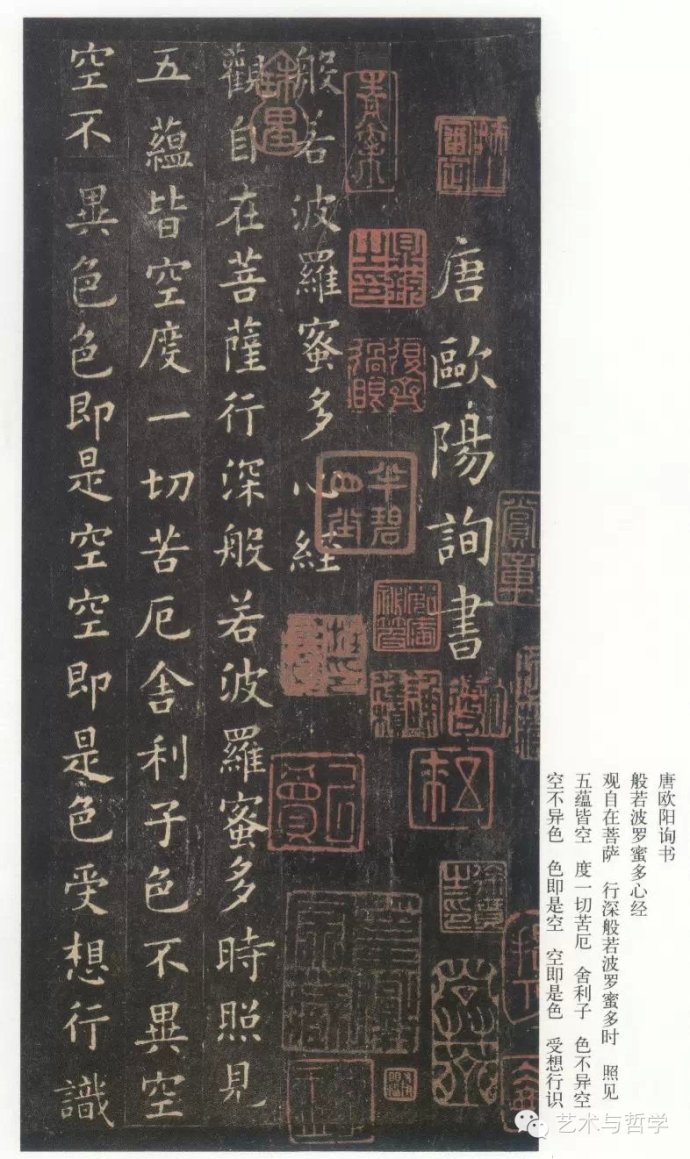 唐歐陽詢書
般若波羅蜜多心経
觀自在菩薩行深般若波羅蜜多時照見
五蘊皆空度一切苦厄舍利子色不異空
空不異色色即是空空即是色受想行識
唐欧阳询书
般若波罗蜜多心经
观自在菩萨 行深般若波罗蜜多时 照见
五蕴皆空 度一切苦厄 舍利子 色不异空
空不异色 色即是空 空即是色 受想行识
艺术与哲学